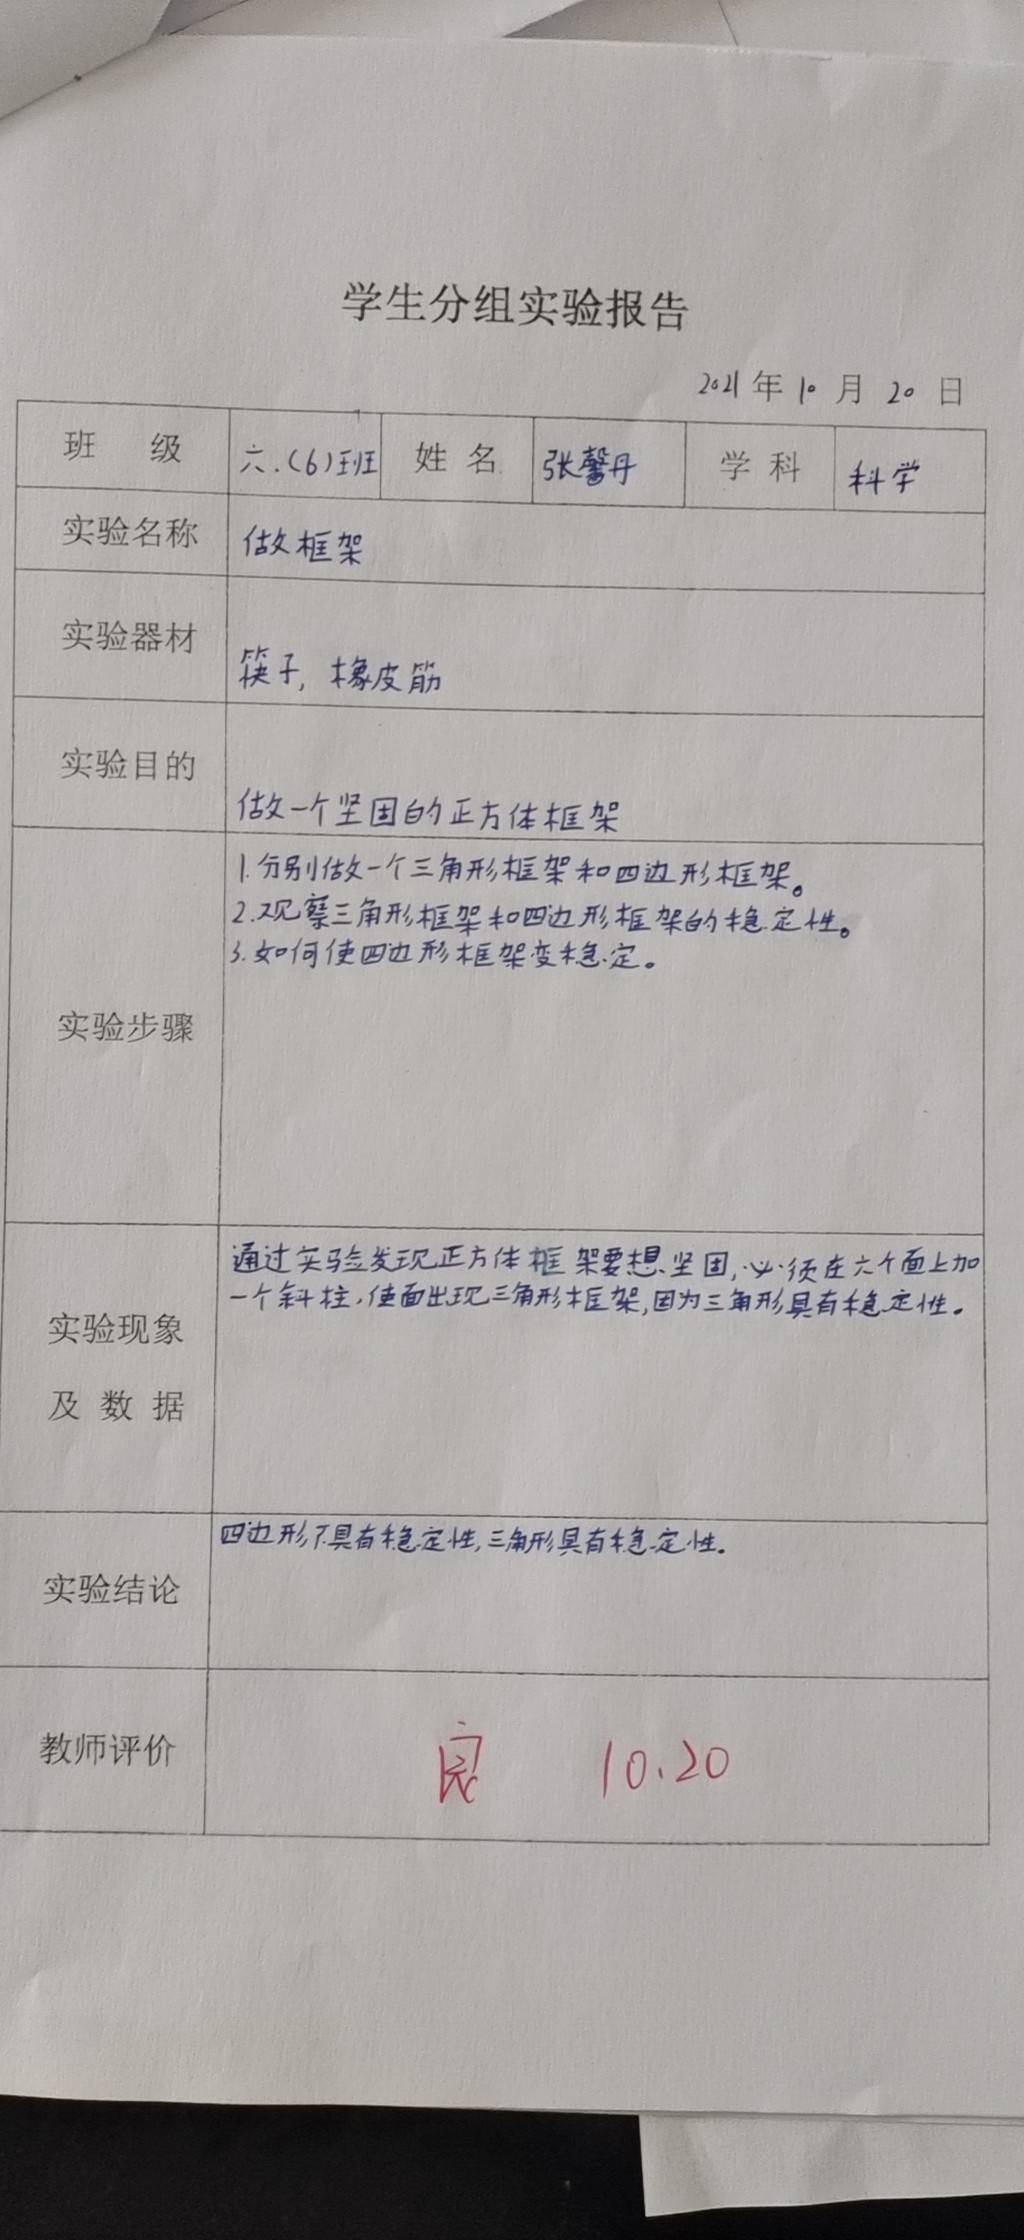 学生分组实验报告
2021年10月20日
班 级 六.(6)班 姓名 张馨丹 学科 科学
实验名称 做框架
实验器材 筷子,橡皮筋
实验目的 做一个坚固的正方体框架
实验步骤
1.分别做一个三角形框架和四边形框架。
2.观察三角形框架和四边形框架的稳定性。
3.如何使四边形框架变稳定。
实验现象
及数据
通过实验发现正方体框架要想坚固,必须在六个面上加
一个斜柱,使面出现三角形框架,因为三角形具有稳定性。
实验结论
四边形不具有稳定性,三角形具有稳定性。
教师评价 良 10.20